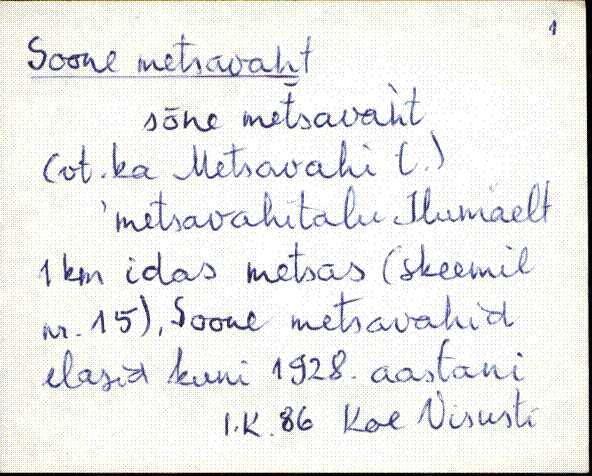 1
Soone metsavaht
sōne met̄savaht
(vt. ka Metsavahi t.)
'metsavahitalu Ilumäelt
1 km idas metsas (skeemil
nr. 15), Soone metsavahid
elasid kuni 1928. aastani
I.K. 86 Koe Visusti